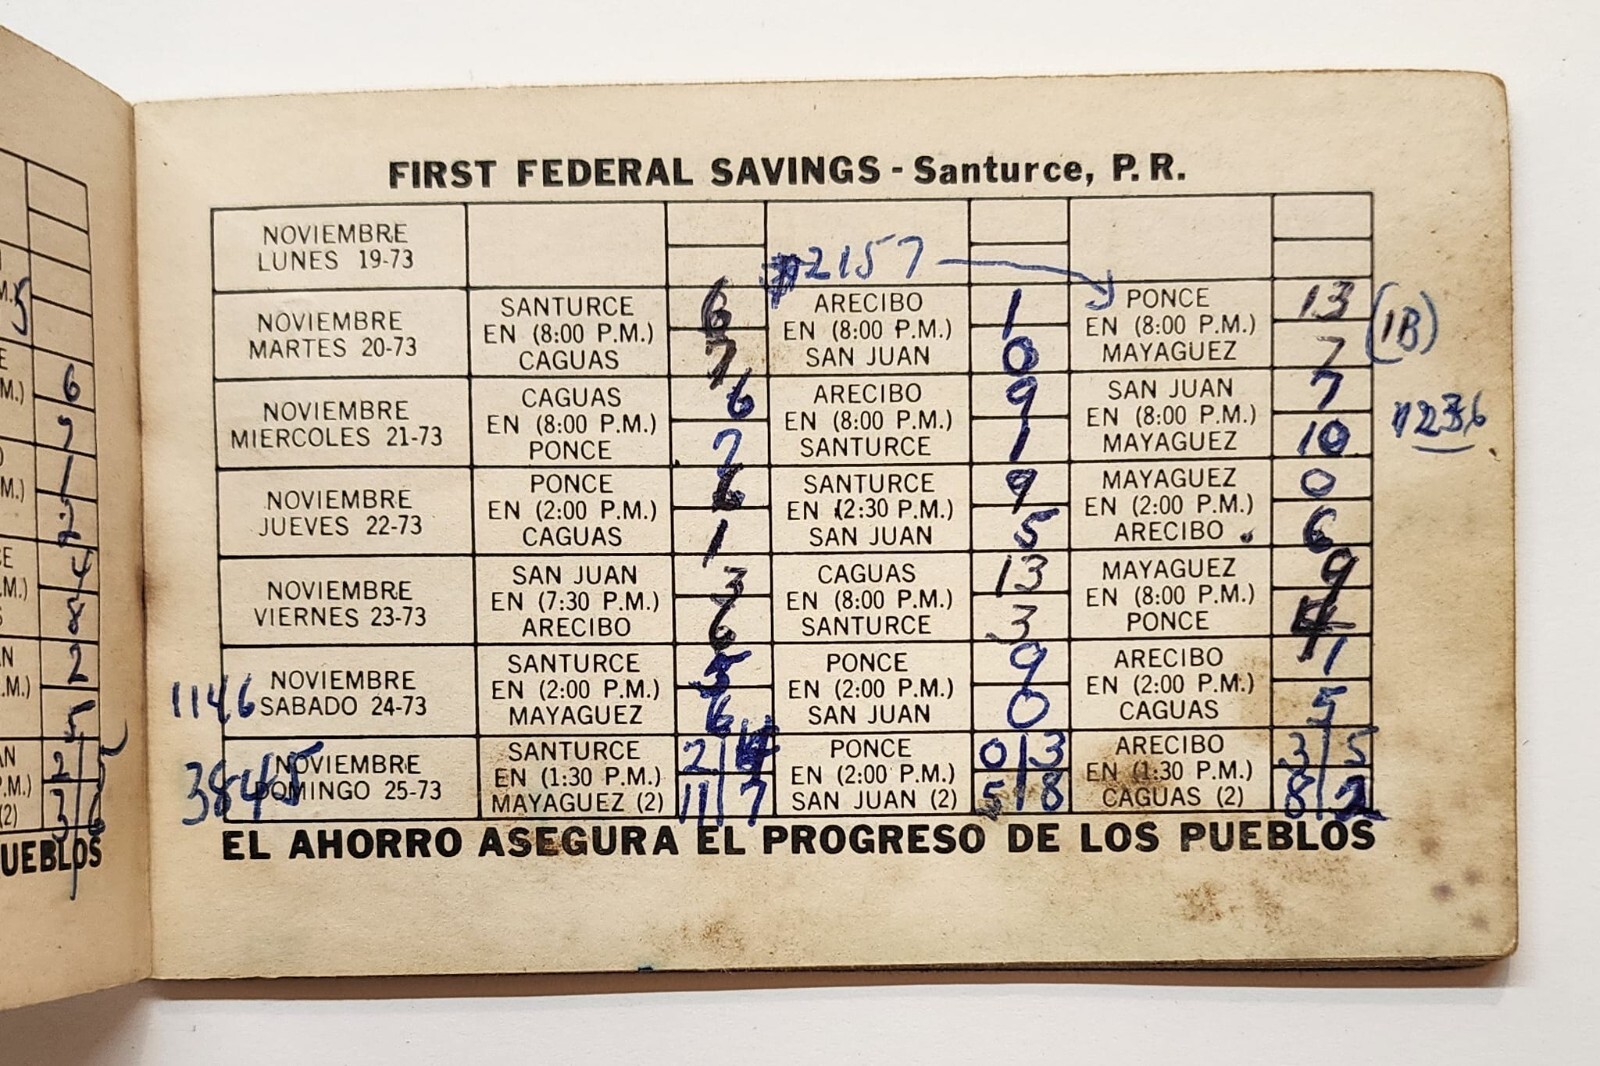 FIRST FEDERAL SAVINGS - Santurce, P.R.
NOVIEMBRE
LUNES 19-73
#2157
NOVIEMBRE
MARTES 20-73
SANTURCE 6
EN (8:00 P.M.)
CAGUAS 7
ARECIBO 1
EN (8:00 P.M.)
SAN JUAN 0
PONCE 13
EN (8:00 P.M.)
MAYAGUEZ 7
(1B)
NOVIEMBRE
MIERCOLES 21-73
CAGUAS 6
EN (8:00 P.M.)
PONCE 7
ARECIBO 9
EN (8:00 P.M.)
SANTURCE 1
SAN JUAN 7
EN (8:00 P.M.)
MAYAGUEZ 10
NOVIEMBRE
JUEVES 22-73
PONCE 6
EN (2:00 P.M.)
CAGUAS 1
SANTURCE 9
EN (2:30 P.M.)
SAN JUAN 5
MAYAGUEZ 0
EN (2:00 P.M.)
ARECIBO 6
NOVIEMBRE
VIERNES 23-73
SAN JUAN 3
EN (7:30 P.M.)
ARECIBO 6
CAGUAS 13
EN (8:00 P.M.)
SANTURCE 3
MAYAGUEZ 9
EN (8:00 P.M.)
PONCE
1146
NOVIEMBRE
SABADO 24-73
SANTURCE 5
EN (2:00 P.M.)
MAYAGUEZ 6
PONCE 9
EN (2:00 P.M.)
SAN JUAN 0
ARECIBO 1
EN (2:00 P.M.)
CAGUAS 5
3845
NOVIEMBRE
DOMINGO 25-73
SANTURCE 2 4
EN (1:30 P.M.)
MAYAGUEZ (2) 11 7
PONCE 0 3
EN (2:00 P.M.)
SAN JUAN (2) 5 8
ARECIBO 3 5
EN (1:30 P.M.)
CAGUAS (2) 8 2
EL AHORRO ASEGURA EL PROGRESO DE LOS PUEBLOS